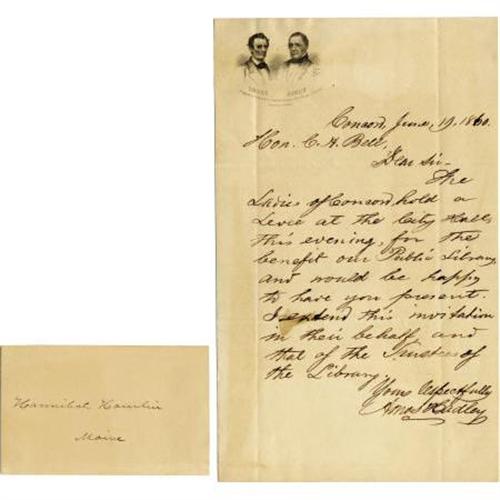 Concord, June, 19. 1860.
Hon. C. H. Bell,
Dear Sir-
The
Ladies of Concord, hold a
Levee at the City Hall,
this evening, for the
benefit our Public Library,
and would be happy
to have you present.
I extend this invitation
in their behalf, and
that of the Trustees of
the Library.
Yours respectfully
Amos Hadley
Hannibal Hamlin
Maine